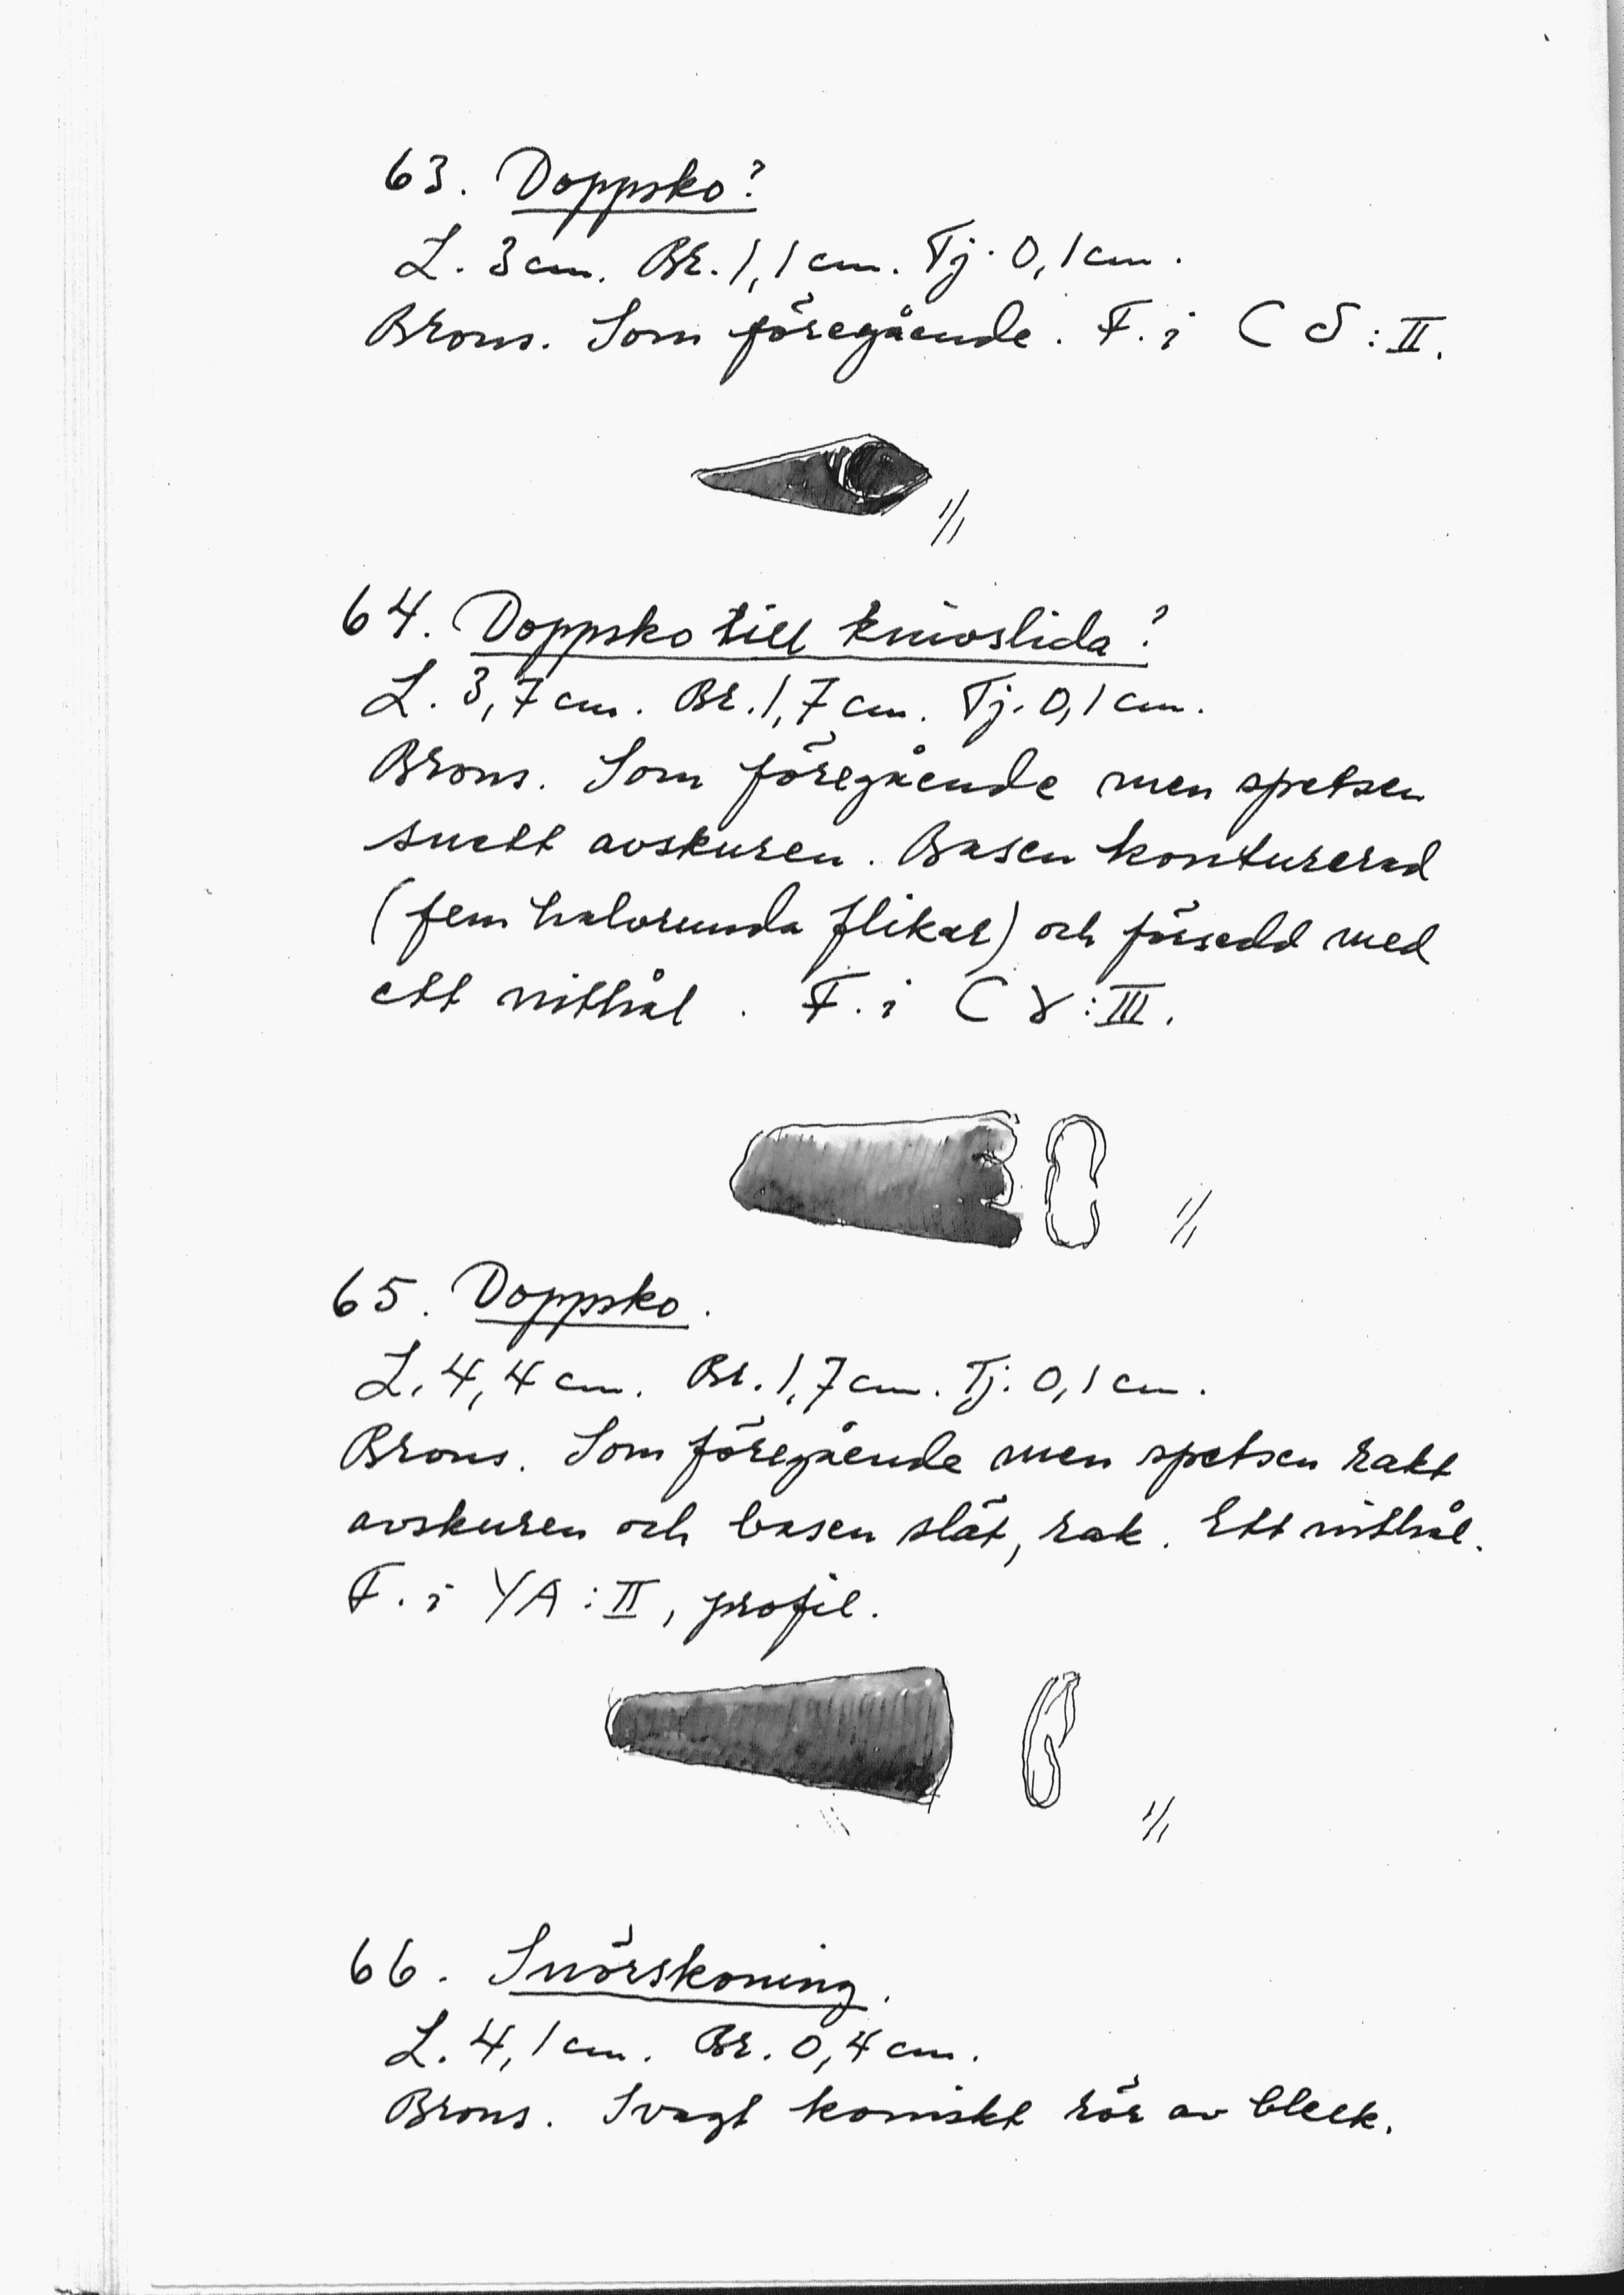 63. Doppsko?
L. 3 cm. Br. 1,1 cm. Tj. 0,1 cm.
Brons. Som föregående. F. i C δ : II.
1/1
64. Doppsko till knivslida?
L. 3,7 cm. Br. 1,7 cm. Tj. 0,1 cm.
Brons. Som föregående men spetsen
snett avskuren. Basen konturerad
(fem halvrunda flikar) och försedd med
ett nithål. F. i C γ : III.
1/1
65. Doppsko.
L. 4,4 cm. Br. 1,7 cm. Tj. 0,1 cm.
Brons. Som föregående men spetsen rakt
avskuren och basen slät, rak. Ett nithål.
F. i YA : II, profil.
1/1
66. Snörskoning.
L. 4,1 cm. Br. 0,4 cm.
Brons. Svagt koniskt rör av bleck.